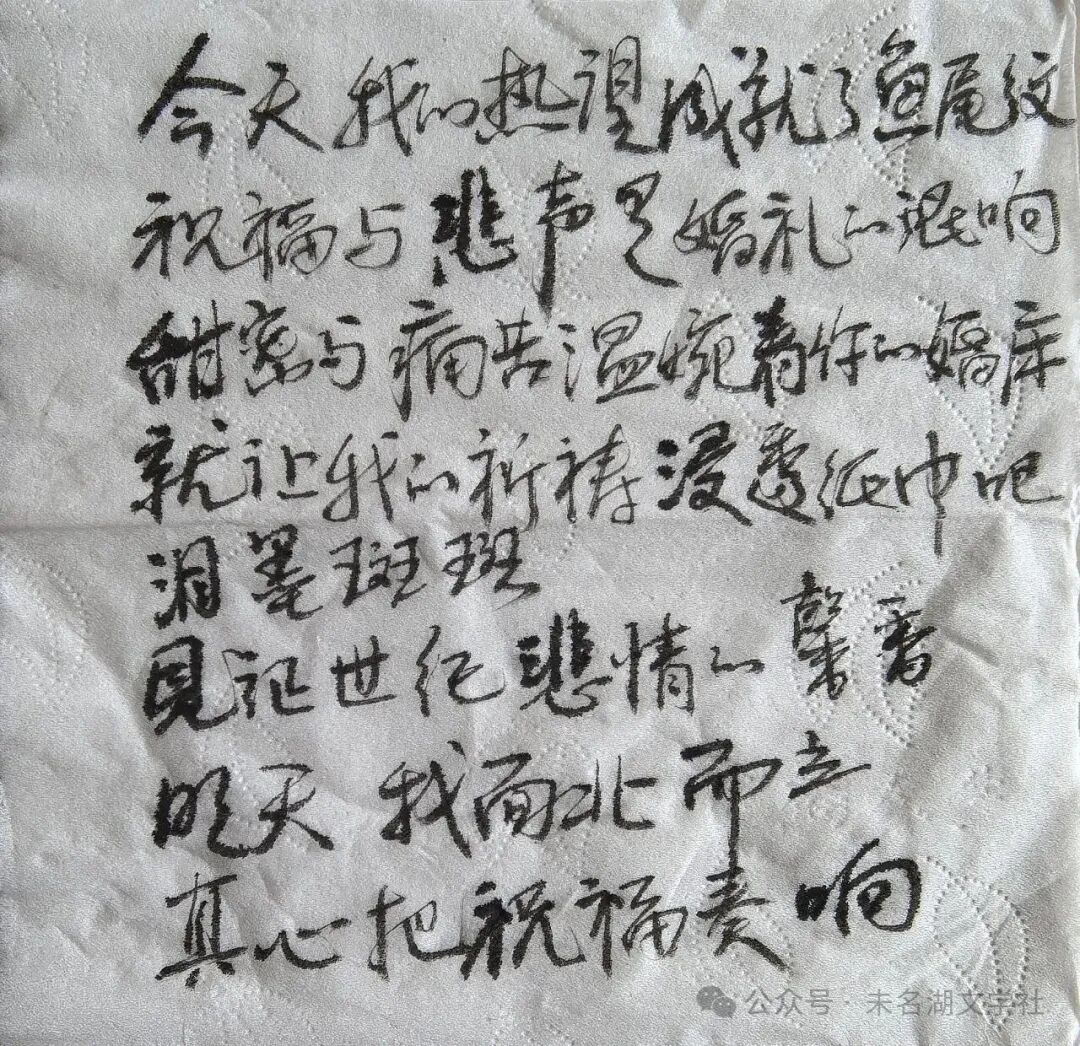 今天 我的热望成就了鱼尾纹
祝福与悲声是婚礼的混响
甜蜜与痛苦温婉着你的婚床
就让我的祈祷浸透纸巾吧
泪墨斑斑
见证世纪悲情的馨香
明天 我面北而立
真心把祝福奏响
公众号 · 未名湖文学社